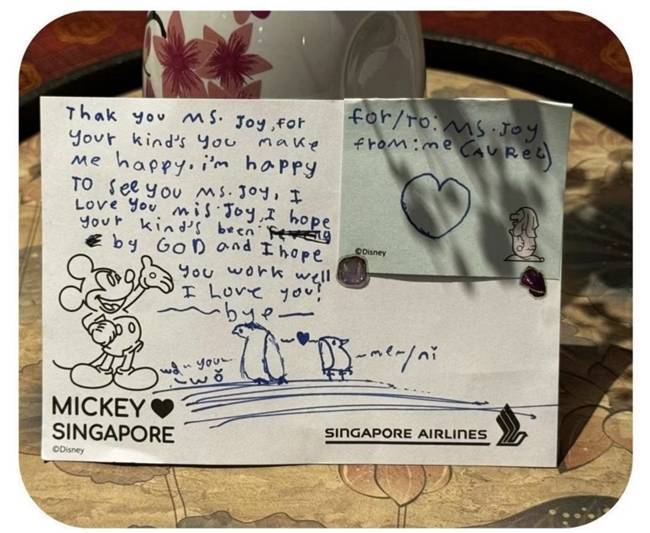 Thak you Ms. Joy, for
your kind's you make
me happy. i'm happy
To see you Ms. Joy, I
Love you mis Joy, I hope
your kind's been
by GOD and I hope
you work well
I Love you!
bye
for/To: Ms. Joy
from: me (AUREL)
©Disney
you
wǒ
me/nǐ
MICKEY
SINGAPORE
©Disney
SINGAPORE AIRLINES